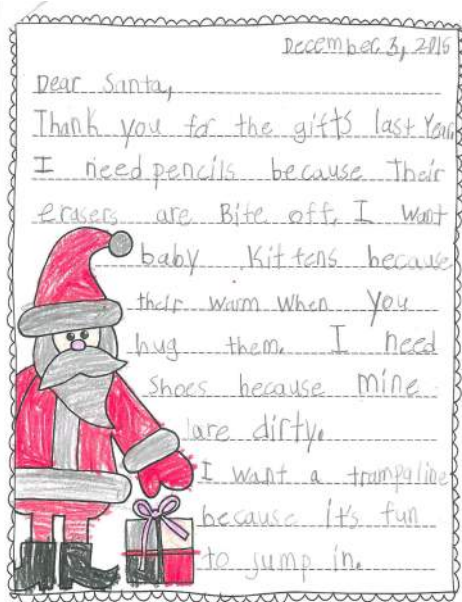 December 3, 2015
Dear Santa,
Thank you for the gifts last Year.
I need pencils because Their
erasers are Bite off. I Want
baby Kittens because
their warm when you
hug them. I need
Shoes because mine
are dirty.
I want a trampaline
because it's fun
to jump in.